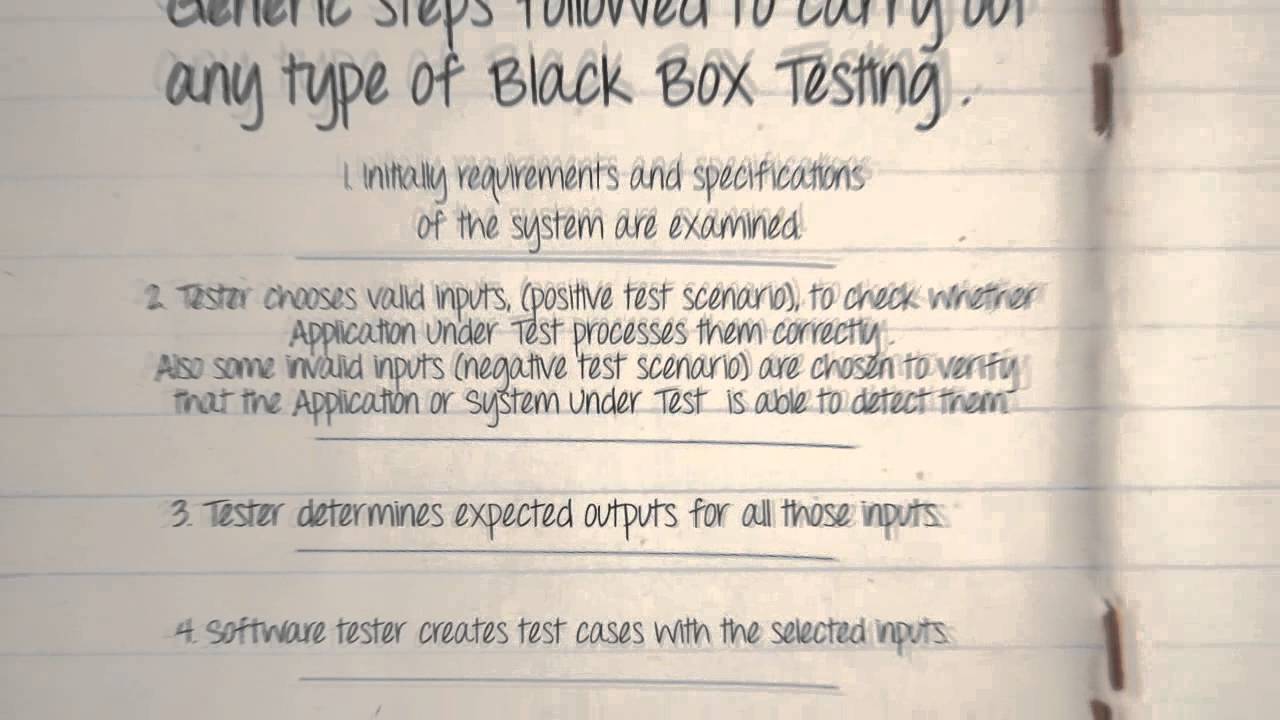 Generic steps followed to carry out
any type of Black Box Testing.
1. Initially requirements and specifications
of the system are examined.
2. Tester chooses valid inputs, (positive test scenario), to check whether
Application Under Test processes them correctly.
Also some invalid inputs (negative test scenario) are chosen to verify
that the Application or System Under Test is able to detect them
3. Tester determines expected outputs for all those inputs.
4. Software tester creates test cases with the selected inputs.